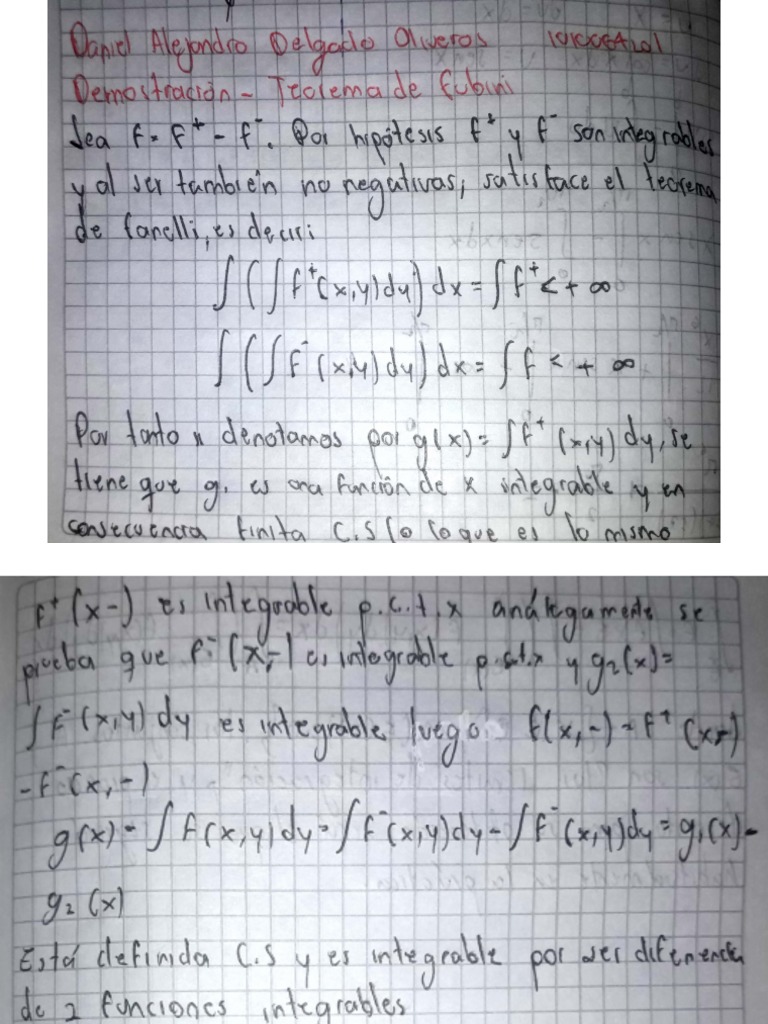 Daniel Alejandro Delgado Oliveros
Demostración - Teorema de Fubini
Sea f = f⁺ - f⁻. Por hipótesis f⁺ y f⁻ son integrables
y al ser también no negativas, satisface el teorema
de Tanelli, es decir:
∫(∫f⁺(x,y)dy)dx = ∫f⁺ < + ∞
∫(∫f⁻(x,y)dy)dx = ∫f < + ∞
Por tanto denotamos por g(x) = ∫f⁺(x,y)dy, se
tiene que g₁ es una función de x integrable y en
consecuencia finita C.S (o lo que es lo mismo
f⁺(x-) es integrable p.c.t.x análogamente se
prueba que f⁻(x,-) es integrable p.c.t.x y g₂(x)=
∫f⁻(x,y)dy es integrable luego f(x,-) = f⁺(x,-)
-f⁻(x,-)
g(x) = ∫f(x,y)dy = ∫f⁻(x,y)dy - ∫f⁻(x,y)dy = g₁(x) -
g₂(x)
Está definida C.S y es integrable por ser diferencia
de 2 funciones integrables